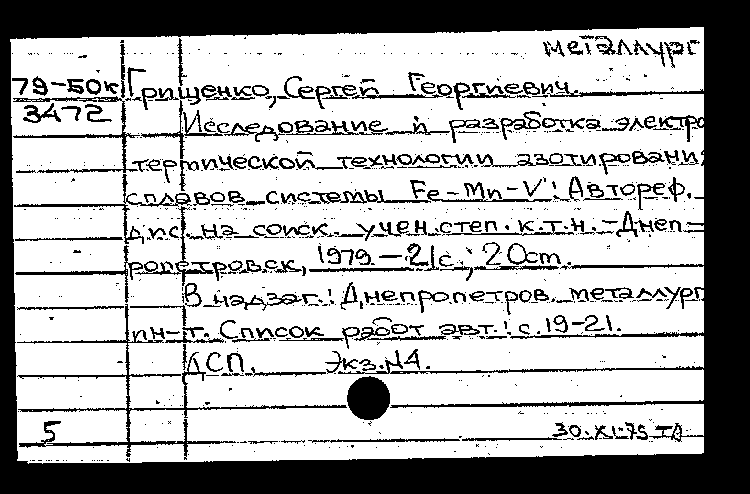 металлург
79-50к Грищенко, Сергей Георгиевич.
3472
Исследование и разработка электро
термической технологии азотировани
сплавов системы Fe-Mn-V: Автореф.
дис. на соиск. учен. степ. к.т.н. - Днеп-
ропетровск, 1979. - 21с.; 20ст.
В надзаг.: Днепропетров. металлург
ин-т. Список работ авт.: с. 19-21.
ДСП. Экз. №4.
5 30.XI.75